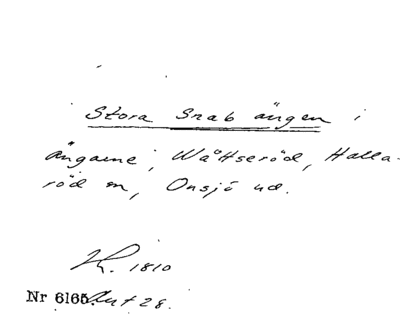 Stora Snab ängen i
ängarne; Wåttseröd, Halla-
röd sn, Onsjö hd.
K. 1810
Nr 6165. Akt 28.